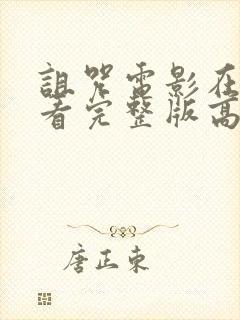 詛咒電影在
看完整版高
唐正東